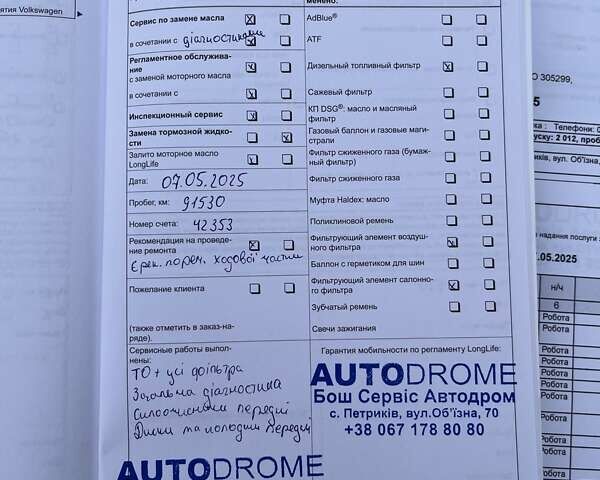 менено:
ятия Volkswagen
Сервис по замене масла
AdBlue®
в сочетании с діагностикою
ATF
Регламентное обслужива-
ние
с заменой моторного масла
Дизельный топливный фильтр
в сочетании с
Сажевый фильтр
Инспекционный сервис
КП DSG®: масло и масляный
фильтр
Замена тормозной жидко-
сти
Газовый баллон и газовые маги-
страли
Залито моторное масло
LongLife
Фильтр сжиженного газа (бумаж-
ный фильтр)
Дата: 07.05.2025
Фильтр сжиженного газа
Пробег, км: 91530
Муфта Haldex: масло
Номер счета: 42353
Поликлиновой ремень
Рекомендация на проведе-
ние ремонта
Фильтрующий элемент воздуш-
ного фильтра
ходової части
Баллон с герметиком для шин
Пожелание клиента
Фильтрующий элемент салонно-
го фильтра
Зубчатый ремень
(также отметить в заказ-на-
ряде).
Свечи зажигания
Сервисные работы выпол-
нены:
Гарантия мобильности по регламенту LongLife:
ТО + усі фільтра
Загальна діагностика
передні
Диски та колодки передні
AUTODROME
Бош Сервіс Автодром
с. Петриків, вул.Об'їзна, 70
+38 067 178 80 80
AUTODROME
О 305299,
5
Телефони: 0
уску: 2 012, проб
иків, вул. Об'їзна,
надання послуги :
.05.2025
н/ч
6
Робота
Робота
Робота
Робота
Робота
Робота
Робота
Робота